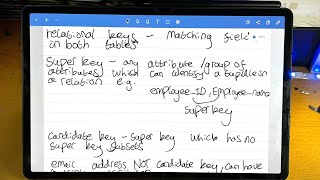 relational keys - matching field
in both tables
Super key - any attribute / group of
attributes which can identify a tuple in
a relation e.g.
employee_ID, Employee_name
super key
candidate key - super key which has no
super key subsets
email address NOT candidate key, can have